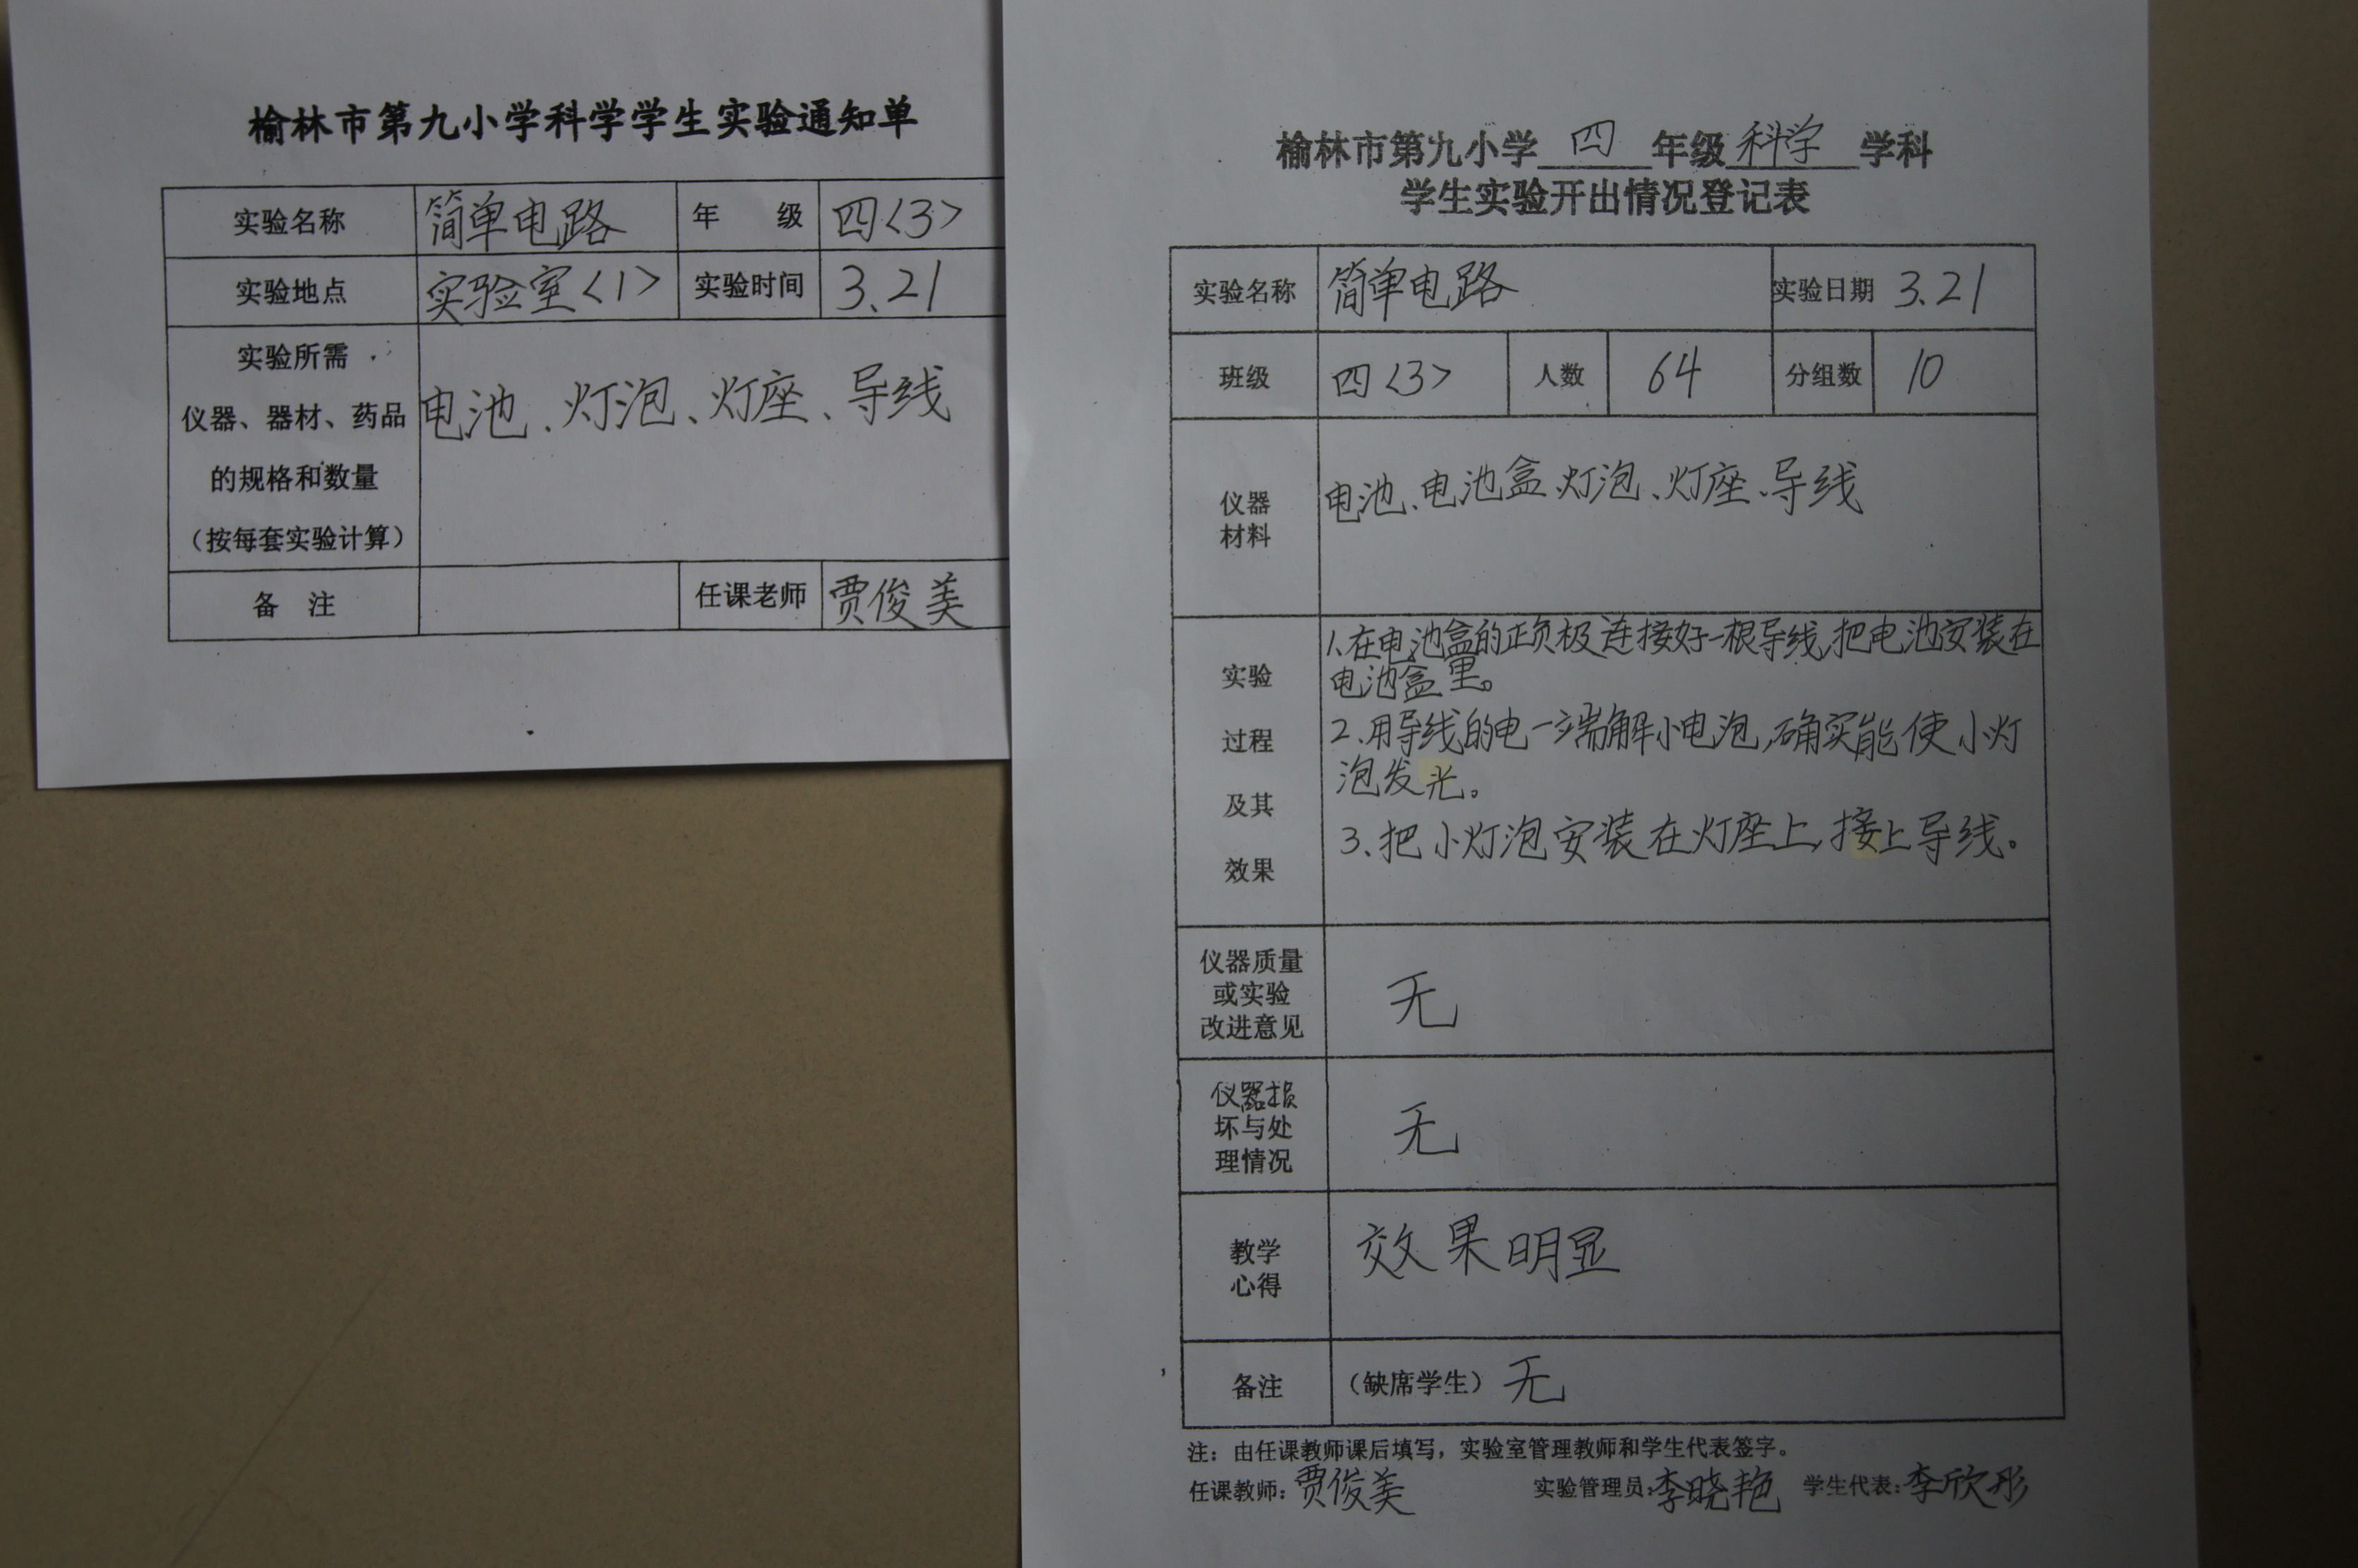 榆林市第九小学科学学生实验通知单
实验名称 简单电路 年 级 四<3>
实验地点 实验室<1> 实验时间 3.21
实验所需
仪器、器材、药品
的规格和数量
(按每套实验计算)
电池、灯泡、灯座、导线
备 注 任课老师 贾俊美
榆林市第九小学 四 年级 科学 学科
学生实验开出情况登记表
实验名称 简单电路 实验日期 3.21
班级 四<3> 人数 64 分组数 10
仪器
材料
电池、电池盒、灯泡、灯座、导线
实验
过程
及其
效果
1、在电池盒的正负极连接好一根导线,把电池安装在
电池盒里。
2、用导线的电一端解小电泡,确实能使小灯
泡发光。
3、把小灯泡安装在灯座上,接上导线。
仪器质量
或实验
改进意见
无
仪器损
坏与处
理情况
无
教学
心得
效果明显
备注 (缺席学生) 无
注:由任课教师课后填写,实验室管理教师和学生代表签字。
任课教师:贾俊美 实验管理员:李晓艳 学生代表:李欣彤